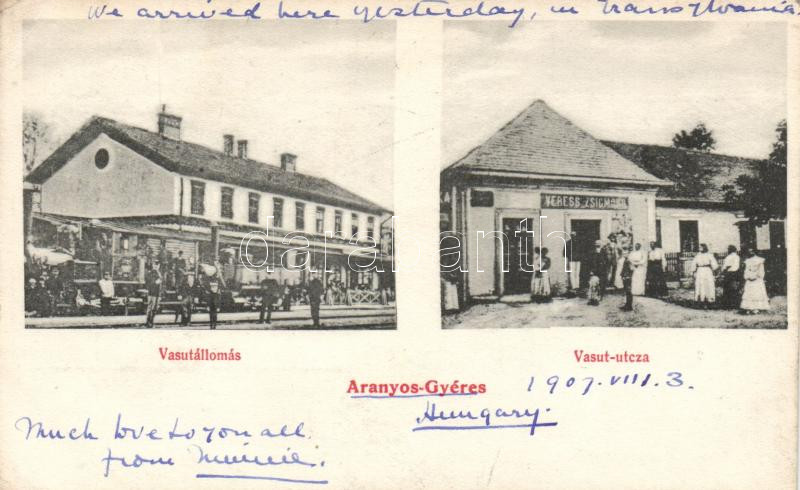 We arrived here yesterday, in Transylvania
VERESS ZSIGMOND
darabanth.com
Vasutállomás
Vasut-utcza
Aranyos-Gyéres 1907.VIII.3.
Hungary.
Much love to you all
from Minnie.